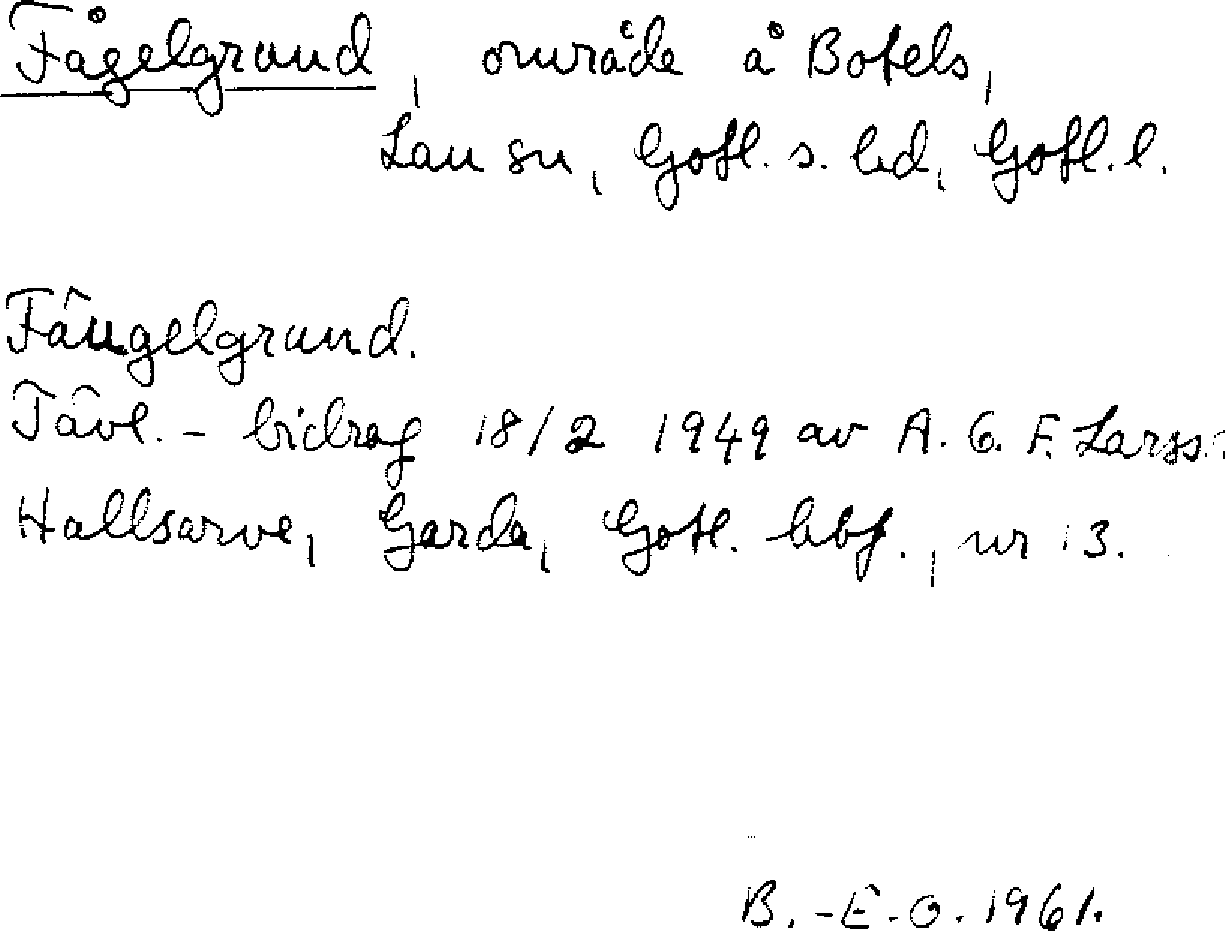 Fågelgrund, område å Botels,
Lau sn, Gotl. s. hd, Gotl. l.
Fåugelgrund.
Tävl. - bidrag 18/2 1949 av A. G. F. Larss.
Hallsarve, Garda, Gotl. hbf., nr 13.
B.-E.O. 1961.